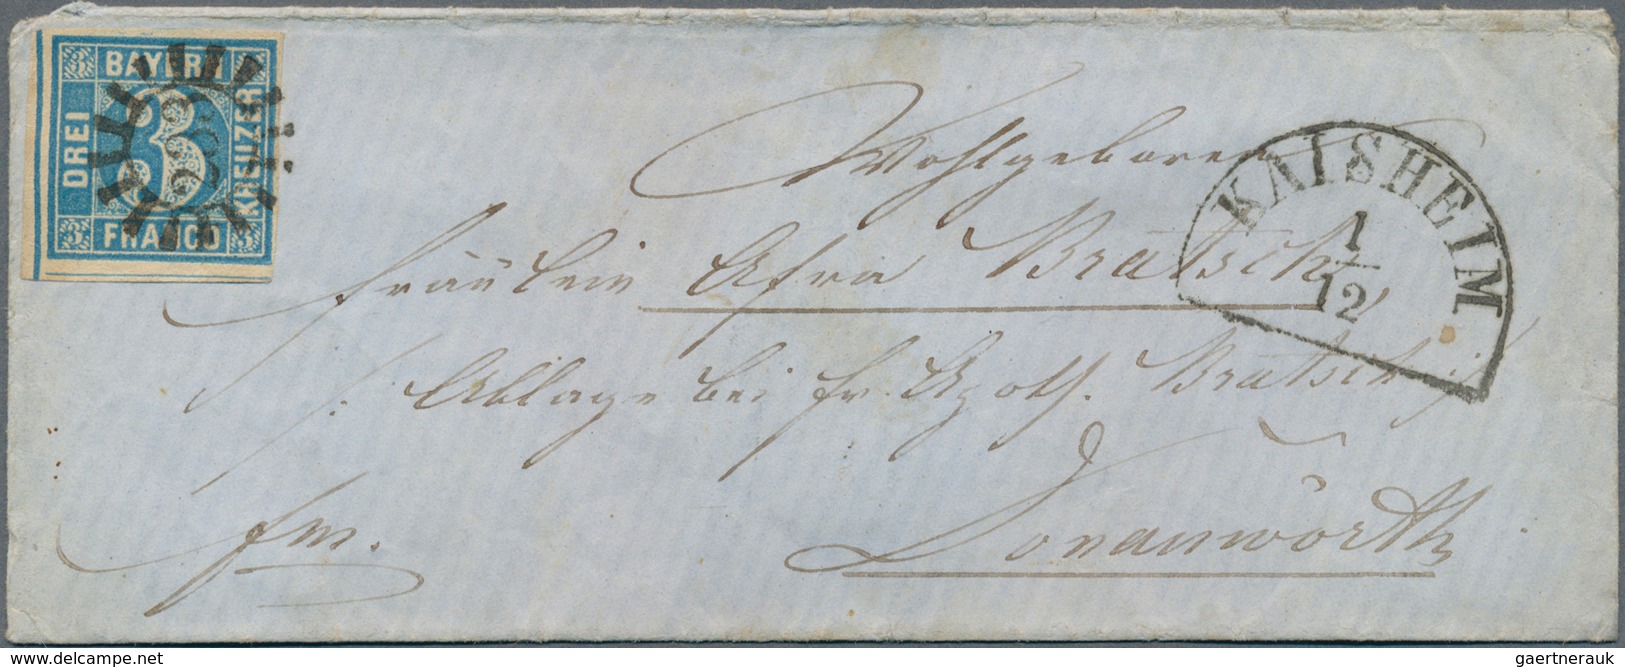 3 BAYERN 3
DREI
3
KREUZER
3 FRANCO 3
KAISHEIM
1/12
Wohlgeboren
Fräulein Afra Bratsch,
Ablage bei Fr. Apoth. Bratsch
frn.
Donauwörth
© www.delcampe.net
gaertnerauk